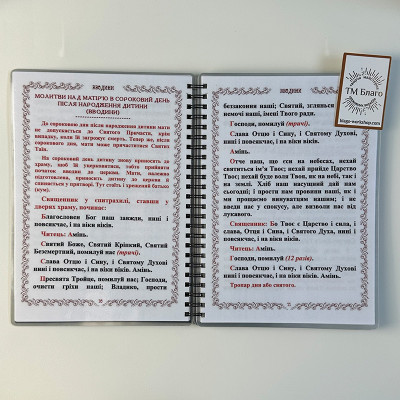 ВВОДИНИ
МОЛИТВИ НАД МАТІР'Ю В СОРОКОВИЙ ДЕНЬ
ПІСЛЯ НАРОДЖЕННЯ ДИТИНИ
(ВВОДИНИ)
До сорокового дня після народження дитини мати
не допускається до Святого Причастя, крім
випадку, коли їй загрожує смерть. Тепер же, після
сорокового дня, мати може причаститися Святих
Таїн.
На сороковий день дитину знову приносять до
храму, щоб їй уцерковитися, тобто прийняти
початок введення до церкви. Мати,
приносить дитину до церкви й
спиняється у притворі. Тут стоїть і хрещений батько
(кум).
Священник у єпитрахилі, ставши у
дверях храму, починає:
Благословен Бог наш завжди, нині і
повсякчас, і на віки віків.
Читець: Амінь.
Святий Боже, Святий Кріпкий, Святий
Безсмертний, помилуй нас (тричі).
Слава Отцю і Сину, і Святому Духові
нині і повсякчас, і на віки віків. Амінь.
Пресвята Тройце, помилуй нас; Господи,
очисти гріхи наші; Владико, прости
ВВОДИНИ
беззаконня наші; Святий, зглянься
немочі наші, імені Твого ради.
Господи, помилуй (тричі).
Слава Отцю і Сину, і Святому Духові,
нині і повсякчас, і на віки віків.
Амінь.
Отче наш, що єси на небесах, нехай
святиться ім'я Твоє; нехай прийде Царство
Твоє; нехай буде воля Твоя, як на небі, так і
на землі. Хліб наш насущний дай нам
сьогодні; і прости нам провини наші, як і
ми прощаємо винуватцям нашим; і не
введи нас у спокусу, але визволи нас від
лукавого.
Священник: Бо Твоє є Царство і сила, і
слава, Отця і Сина, і Святого Духа, нині і
повсякчас, і на віки віків.
Читець: Амінь.
Господи, помилуй (12 разів).
Слава Отцю і Сину, і Святому Духові
нині і повсякчас, і на віки віків. Амінь.
Тропар дня або святого.
ТМ Благо
blago-workshop.com